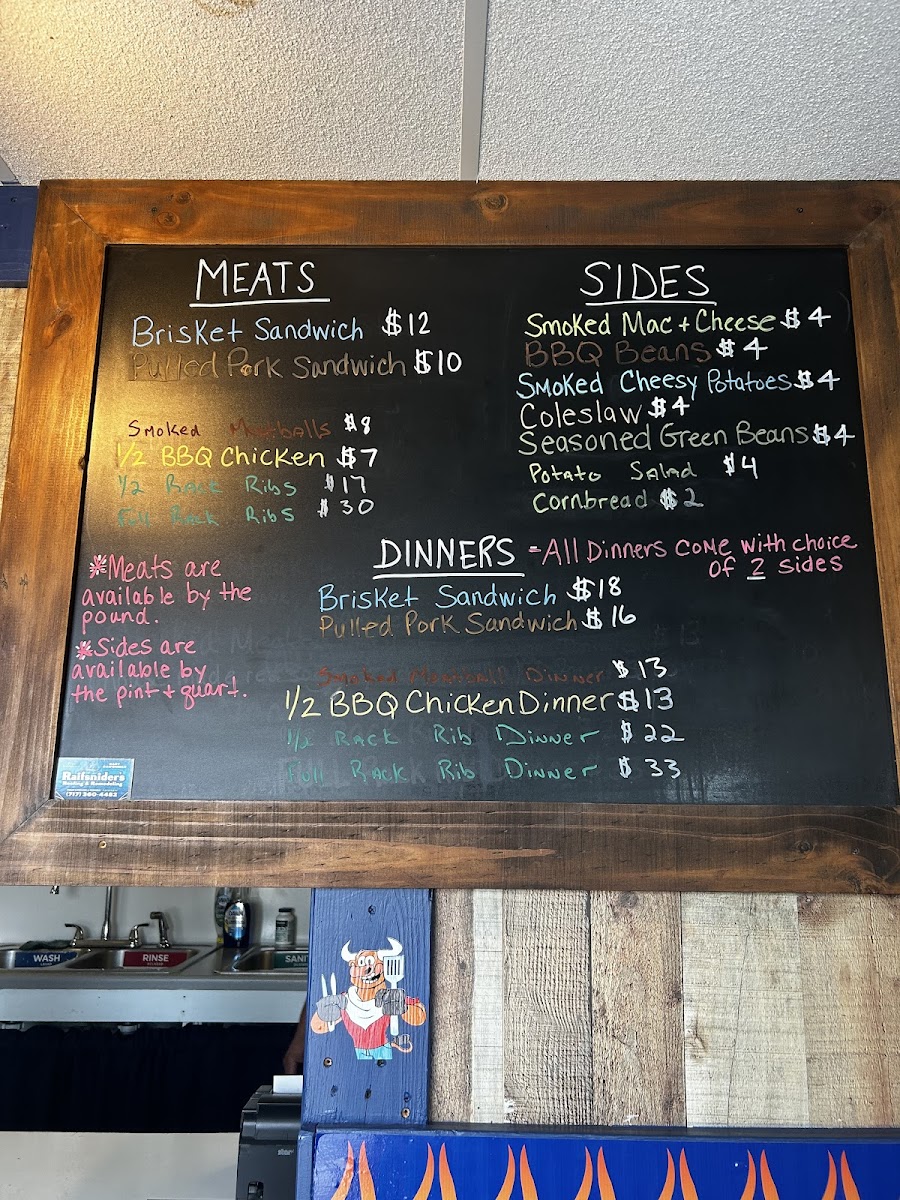 MEATS
Brisket Sandwich $12
Pulled Pork Sandwich $10
Smoked Meatballs $8
1/2 BBQ Chicken $7
1/2 Rack Ribs $17
Full Rack Ribs $30
*Meats are
available by the
pound.
*Sides are
available by
the pint + quart.
SIDES
Smoked Mac + Cheese $4
BBQ Beans $4
Smoked Cheesy Potatoes $4
Coleslaw $4
Seasoned Green Beans $4
Potato Salad $4
Cornbread $2
DINNERS -All Dinners come with choice
of 2 sides
Brisket Sandwich $18
Pulled Pork Sandwich $16
Smoked Meatball Dinner $13
1/2 BBQ Chicken Dinner $13
1/2 Rack Rib Dinner $22
Full Rack Rib Dinner $33
Raifsniders
Roofing & Remodeling
(717) 360-4483
WASH
RINSE
SANI